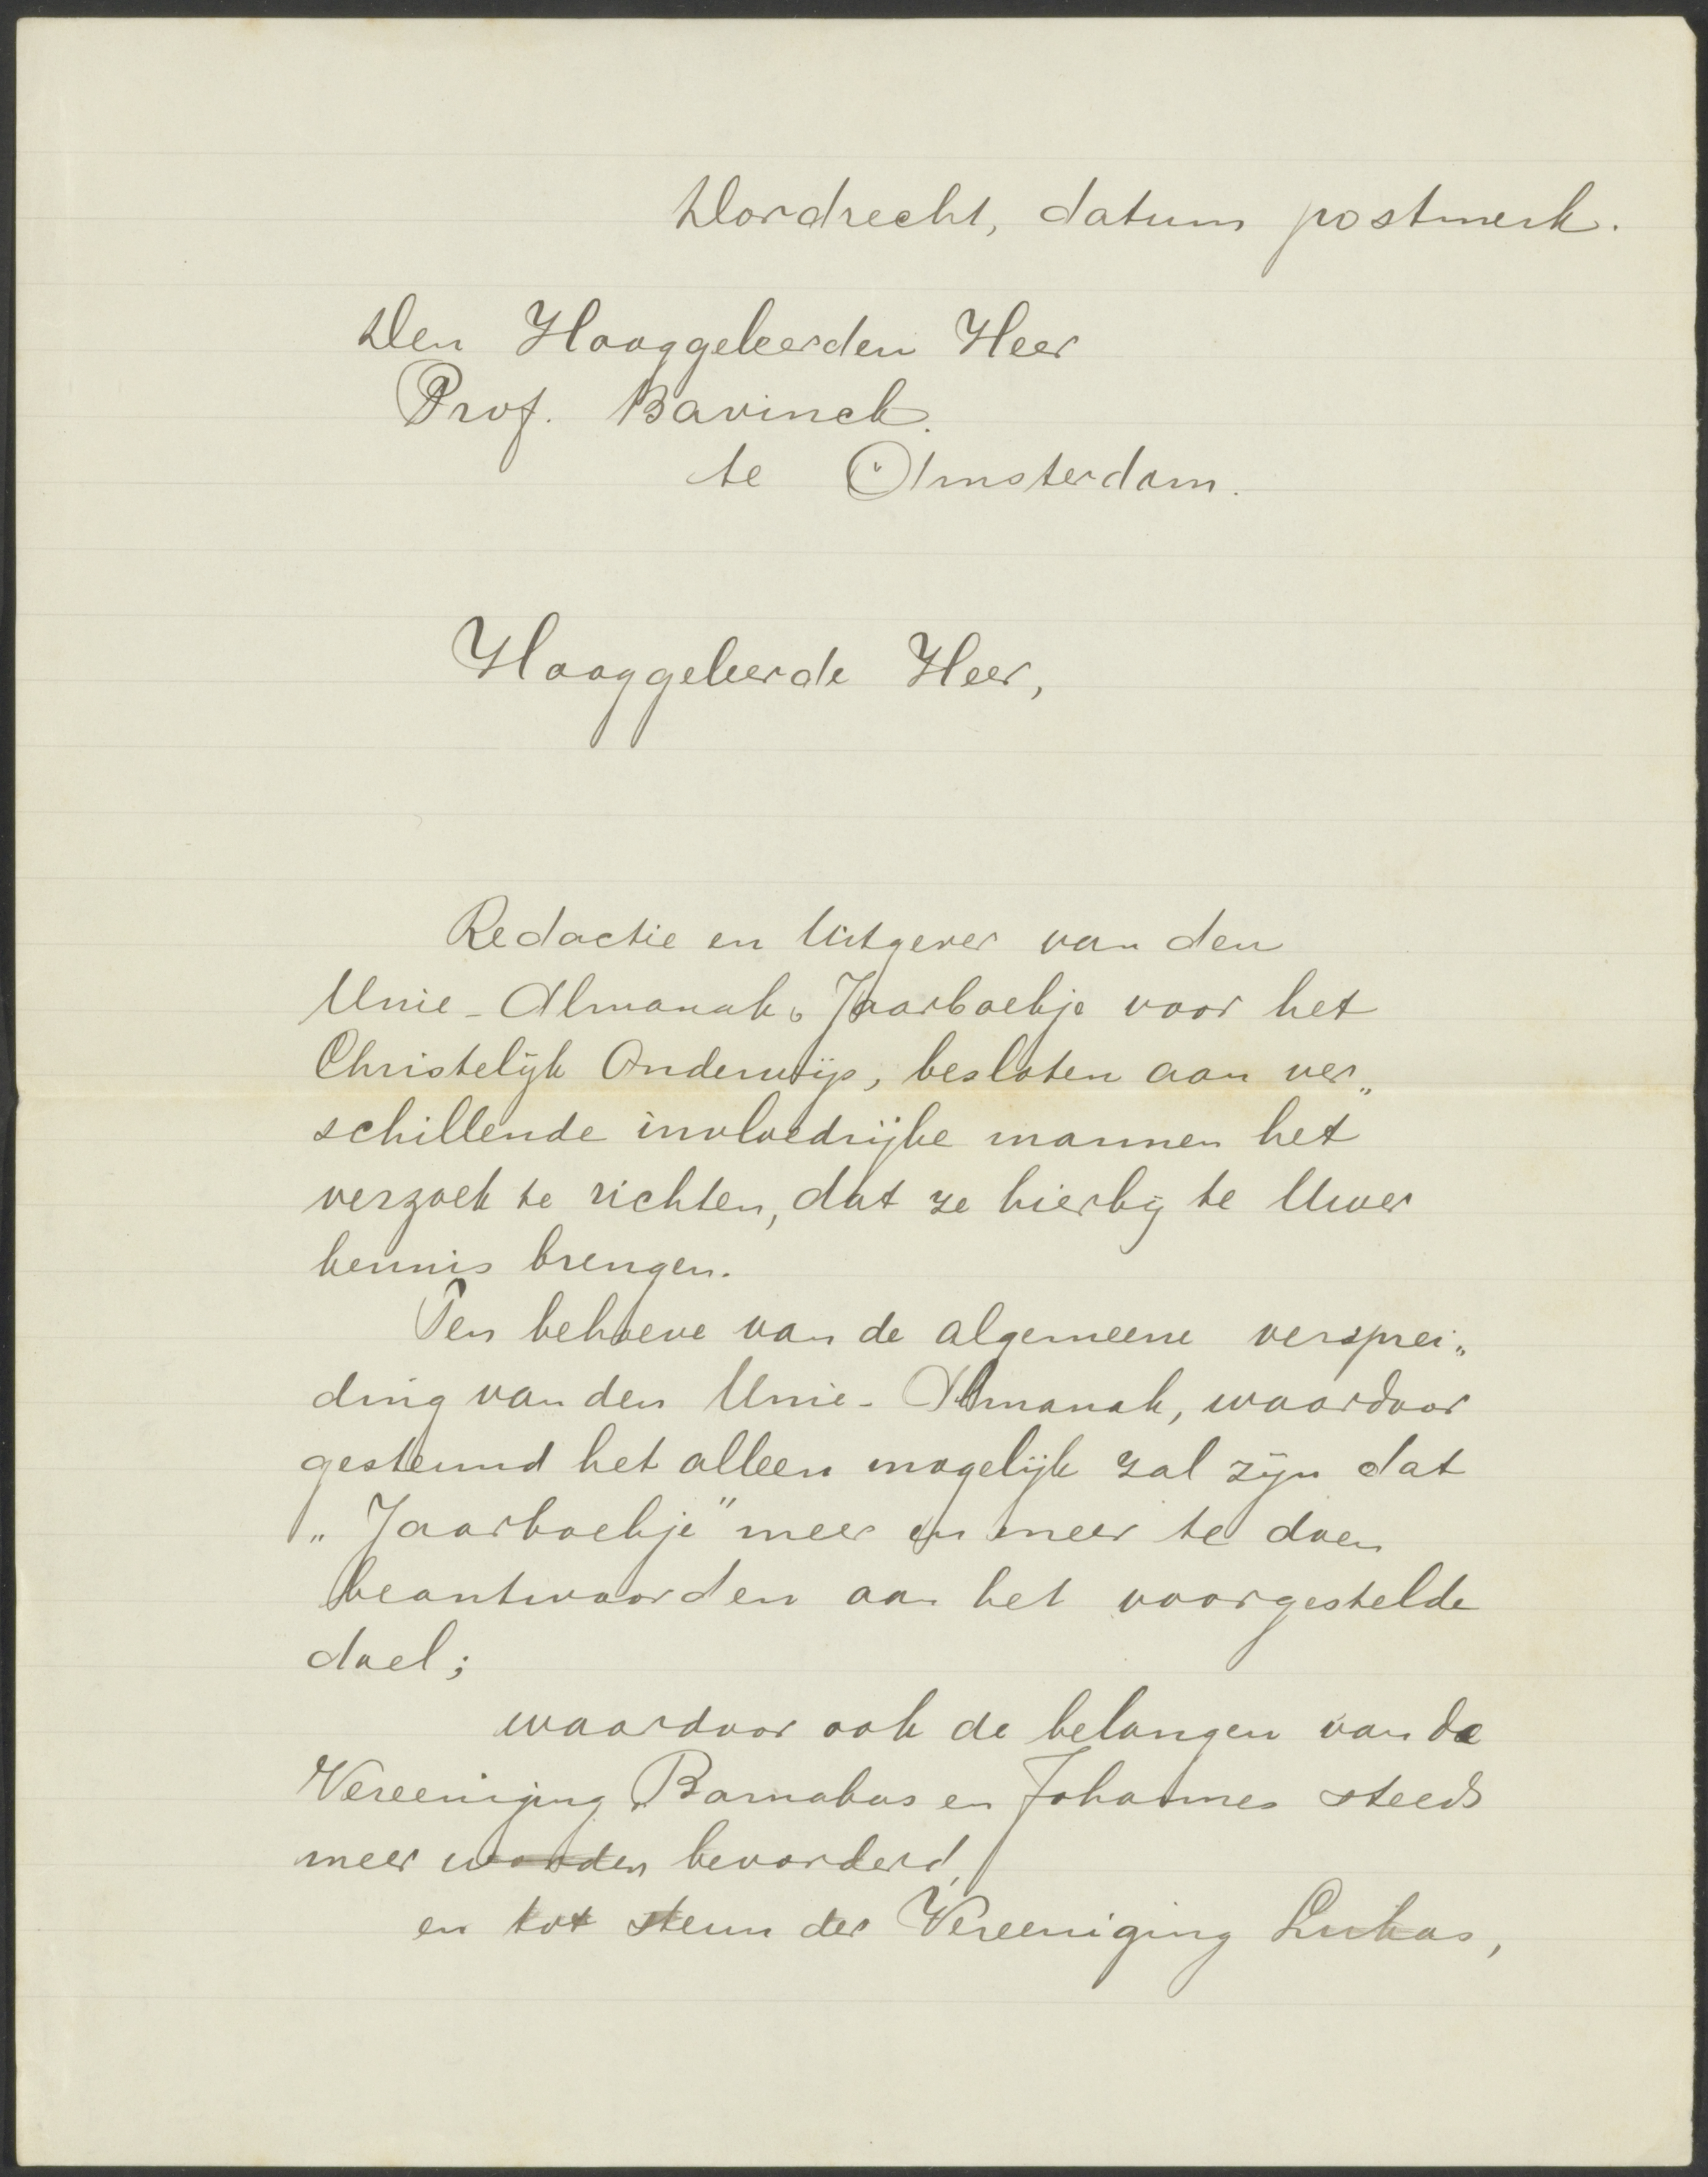 Dordrecht, datum postmerk.
Den Hooggeleerden Heer
Prof. Bavinck.
te Amsterdam.
Hooggeleerde Heer,
Redactie en Uitgever van den
Unie-Almanak, Jaarboekje voor het
Christelijk Onderwijs, besloten aan ver„
schillende invloedrijke mannen het
verzoek te richten, dat ze hierbij te Uwer
kennis brengen.
Ten behoeve van de algemeene versprei„
ding van den Unie-Almanak, waardoor
gesteund het alleen mogelijk zal zijn dat
„Jaarboekje” meer en meer te doen
beantwoorden aan het voorgestelde
doel;
waardoor ook de belangen van de
Vereeniging Barnabas en Johannes steeds
meer worden bevorderd,
en tot steun der Vereeniging Lukas,